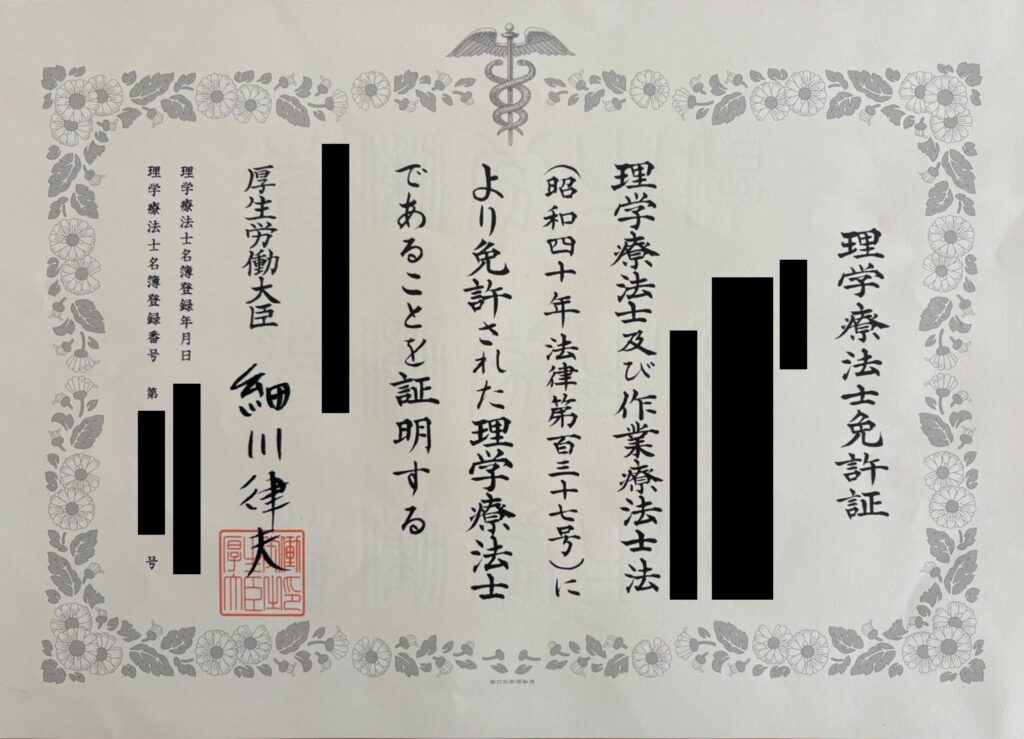 理学療法士免許証
理学療法士及び作業療法士法
(昭和四十年法律第百三十七号)に
より免許された理学療法士
であることを証明する
厚生労働大臣 細川律夫
理学療法士名簿登録年月日
理学療法士名簿登録番号 第 号